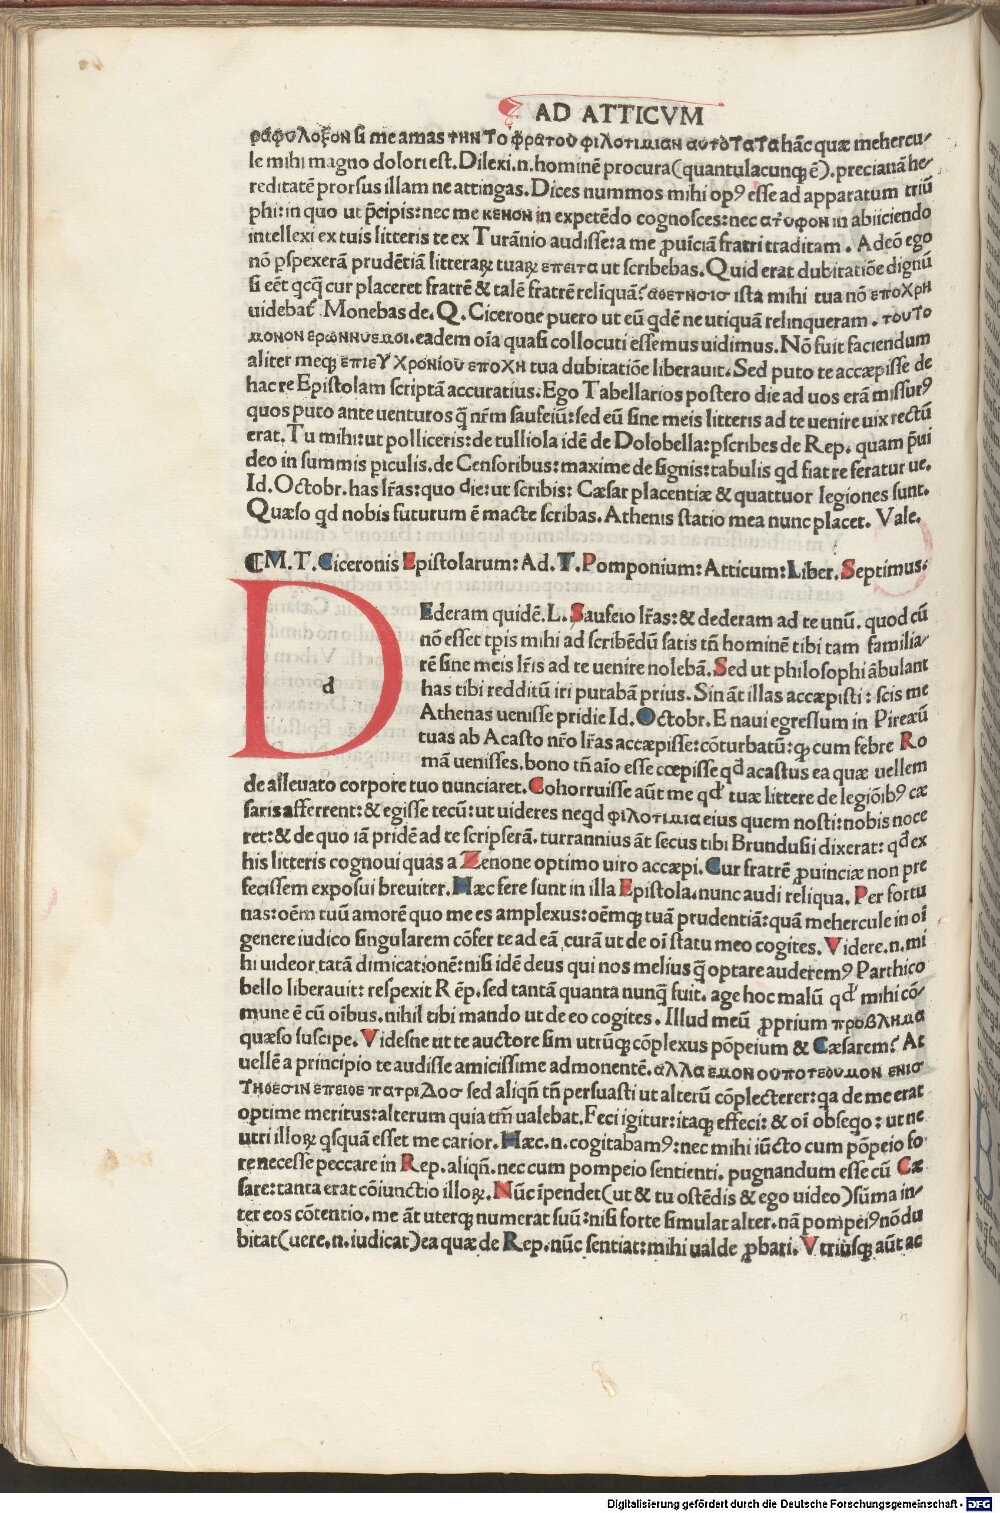 AD ATTICVM
ραφυλοξον si me amas την το φρατου φιλοτιμιαν αυτοτατα hāc quæ mehercu/
le mihi magno dolori est. Dilexi.n.hominē procura(quantulacunqꝫ ē).precianā he/
reditatē prorsus illam ne attingas. Dices nummos mihi opꝰ esse ad apparatum triū
phi:in quo ut p̄cipis:nec me κενον in expetēdo cognosces:nec ατυφον in abiiciendo
intellexi ex tuis litteris te ex Turānio audisse:a me ꝓuīciā fratri traditam. Adeō ego
nō ꝑspexerā prudētiā litteraꝝ tuaꝝ επειτα ut scribebas. Quid erat dubitatiōe dignū
si eēt qcq̄ cur placeret fratrē & talē fratrē relīquā? αθετησισ ista mihi tua nō εποχρη
uidebat̄ Monebas de. Q. Cicerone puero ut eū qdē ne utiquā relinqueram. τουτο
μονον ερωννυεμοι.eadem oīa quasi collocuti essemus uidimus. Nō fuit faciendum
aliter meqꝫ επιευ χρονιου εποχη tua dubitatiōe liberauit. Sed puto te accæpisse de
hac re Epistolam scriptā accuratius. Ego Tabellarios postero die ad uos erā missurꝰ
quos puto ante uenturos q̄ nr̄m saufeiū:sed eū sine meis litteris ad te uenire uix rectū
erat. Tu mihi:ut polliceris:de tulliola idē de Dolobella:ꝑscribes de Rep. quam p̄ui
deo in summis ꝑiculis.de Censoribus:maxime de signis:tabulis qd fiat re feratur ue.
Id. Octobr. has lr̄as:quo die:ut scribis: Cæsar placentiæ & quattuor legiones sunt.
Quæso qd nobis futurum ē macte scribas. Athenis statio mea nunc placet. Vale.
¶M.T.Ciceronis Epistolarum:Ad.T.Pomponium:Atticum:Liber.Septimus:
d
DEderam quidē.L. Saufeio lr̄as:& dederam ad te unū. quod cū
nō esset tꝑis mihi ad scribēdū satis tn̄ hominē tibi tam familia/
rē sine meis lr̄is ad te uenire nolebā. Sed ut philosophi ābulant
has tibi redditū iri putabā prius. Sin āt illas accæpisti: scis me
Athenas uenisse pridie Id. Octobr. E naui egressum in Piræū
tuas ab Acasto nr̄o lr̄as accæpisse:cōturbatū:qꝫ cum febre Ro
mā uenisses.bono tn̄ aīo esse cœpisse qd acastus ea quæ uellem
de alleuato corpore tuo nunciaret. Cohorruisse aūt me qd tuæ littere de legiōibꝰ cæ
saris afferrent:& egisse tecū:ut uideres neqd φιλοτιμια eius quem nosti:nobis noce
ret:& de quo iā pridē ad te scripserā. turrannius āt secus tibi Brundusii dixerat: qd ex
his litteris cognoui quas a Zenone optimo uiro accæpi. Cur fratrē ꝓuinciæ non pre
fecissem exposui breuiter. Hæc fere sunt in illa Epistola.nunc audi reliqua. Per fortu
nas:oēm tuū amorē quo me es amplexus:oēmqꝫ tuā prudentiā:quā mehercule in oī
genere iudico singularem cōfer te ad eā curā ut de oī statu meo cogites. Videre.n.mi
hi uideor tatā dimicationē:nisi idē deus qui nos melius q̄ optare auderemꝰ Parthico
bello liberauit: respexit R ēp. sed tantā quanta nunq̄ fuit. age hoc malū qd mihi cō/
mune ē cū oībus.nihil tibi mando ut de eo cogites. Illud meū ꝓprium προβλημα
quæso suscipe. Videsne ut te auctore sim utrūqꝫ cōplexus pōpeium & Cæsarem? At
uellē a principio te audisse amicissime admonentē.αλλα εμον ουποτεθυμον ενισ
τηθεσιν επειθε πατριδοσ sed aliqn̄ tn̄ persuasti ut alterū cōplecterer:qa de me erat
optime meritus:alterum quia tm̄ ualebat. Feci igitur:itaqꝫ effeci:& oī obseqo:ut ne
utri illoꝝ qsquā esset me carior. Hæc.n.cogitabamꝰ:nec mihi iūcto cum pōpeio fo
re necesse peccare in Rep. aliqn̄.nec cum pompeio sentienti. pugnandum esse cū Cæ
sare:tanta erat cōiunctio illoꝝ. Nūc īpendet(ut & tu ostēdis & ego uideo)sūma in/
ter eos cōtentio.me āt uterqꝫ numerat suū:nisi forte simulat alter.nā pompeiꝰ nō du
bitat(uere.n.iudicat)ea quæ de Rep. nūc sentiat:mihi ualde ꝓbari. Vtriusqꝫ aūt ac
Digitalisierung gefördert durch die Deutsche Forschungsgemeinschaft - DFG